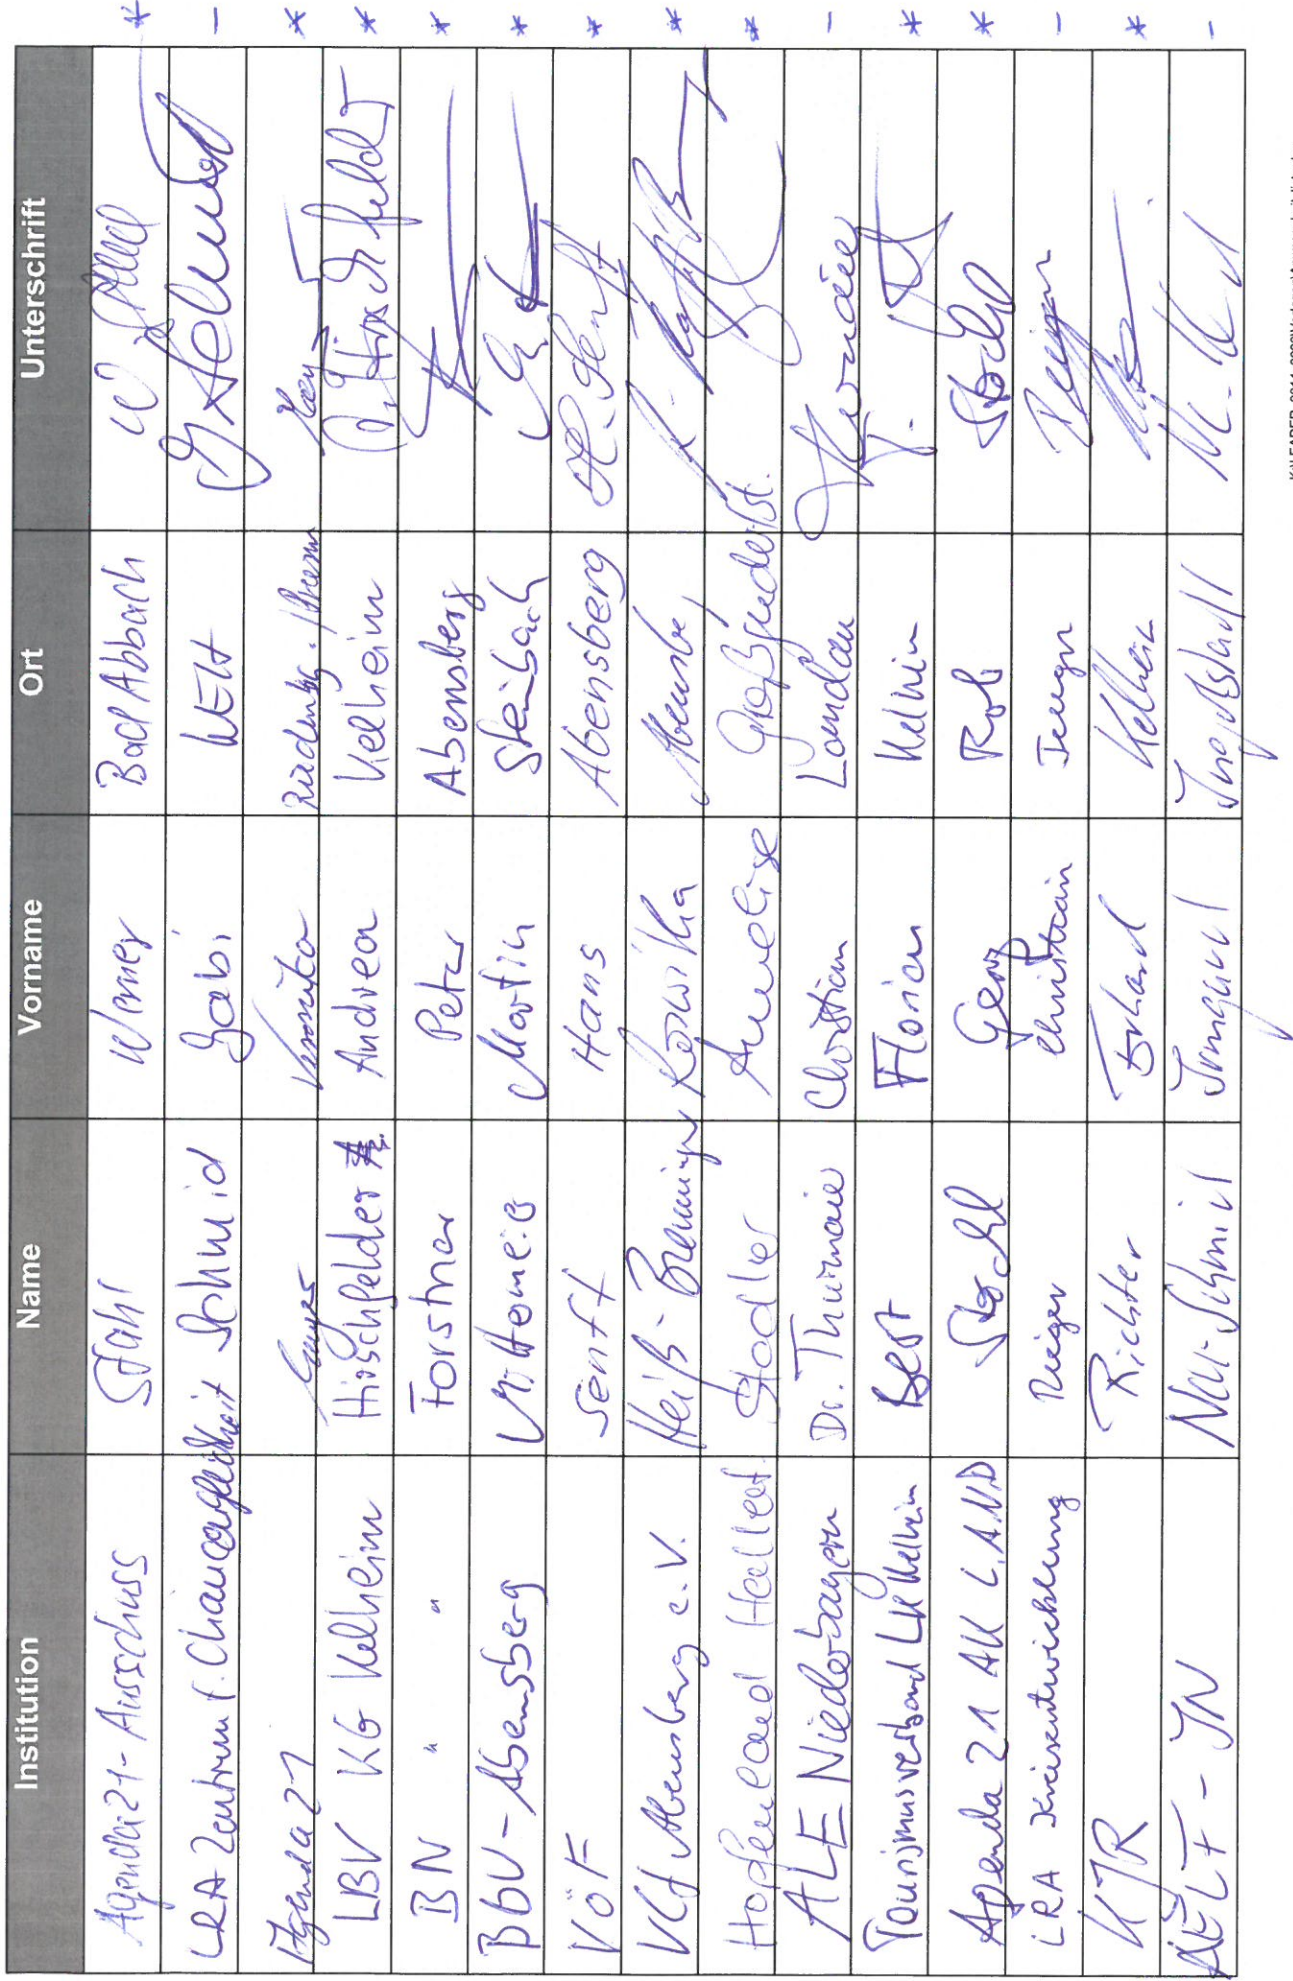 Institution Name Vorname Ort Unterschrift
Agenda21-Ausschuss Stahl Werner Bad Abbach W Stahl *
LRA Zentrum f. Chancengleichheit Schmid Gabi KEH G Schmid -
Agenda 21 Veronika *
LBV KG Kelheim Hirschfelder Andrea Kelheim A. Hirschfelder *
BN " " Forstner Peter Abensberg *
BBV - Abensberg Martin Steinbach *
VöF Senft Hans Abensberg H. Senft *
VCJ Abensberg e.V. Heiß-Breminger Roswitha *
Hopfenland Hallert. Stadler Annelise Großgundertst. *
ALE Niederbayern Dr. Thurmaier Christian Landau Thurmaier -
Tourismusverband LK Kelheim Best Florian Kelheim *
Agenda 21 AK L.A.N.D Stöckl Georg Rob Stöckl *
LRA Kreisentwicklung Rieger Christian Rieger -
KJR Richter Erhard Kelheim *
AELF - IN Neu-Schmid Irmgard Ingolstadt -